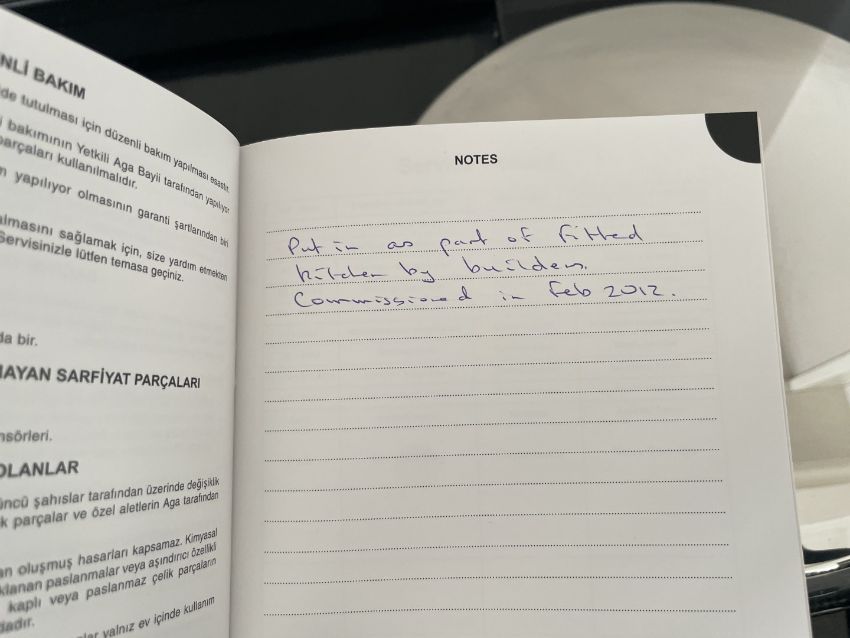 NLİ BAKIM
de tutulması için düzenli bakım yapılması esastır.
i bakımının Yetkili Aga Bayii tarafından yapılıyor
parçaları kullanılmalıdır.
n yapılıyor olmasının garanti şartlarından biri
almasını sağlamak için, size yardım etmekten
Servisinizle lütfen temasa geçiniz.
da bir.
MAYAN SARFİYAT PARÇALARI
nsörleri.
OLANLAR
üncü şahıslar tarafından üzerinde değişiklik
k parçalar ve özel aletlerin Aga tarafından
an oluşmuş hasarları kapsamaz. Kimyasal
klanan paslanmalar veya aşındırıcı özellikli
kaplı veya paslanmaz çelik parçaların
dadır.
lar yalnız ev içinde kullanım
NOTES
Put in as part of fitted
kitchen by builders.
Commissioned in Feb 2012.